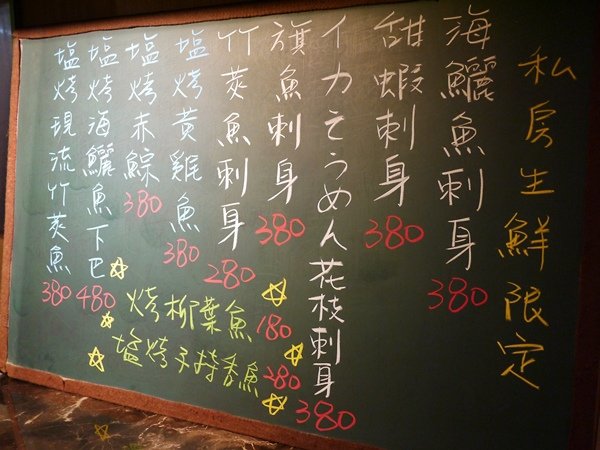 私房生鮮限定
海鱺魚刺身 380
甜蝦刺身 380
イカそうめん花枝刺身 380
旗魚刺身 380
竹莢魚刺身 280
塩烤黃雞魚 380
塩烤赤鯮 380
塩烤海鱺魚下巴 480
塩烤現流竹莢魚 380
烤柳葉魚 180
塩烤子持香魚 280